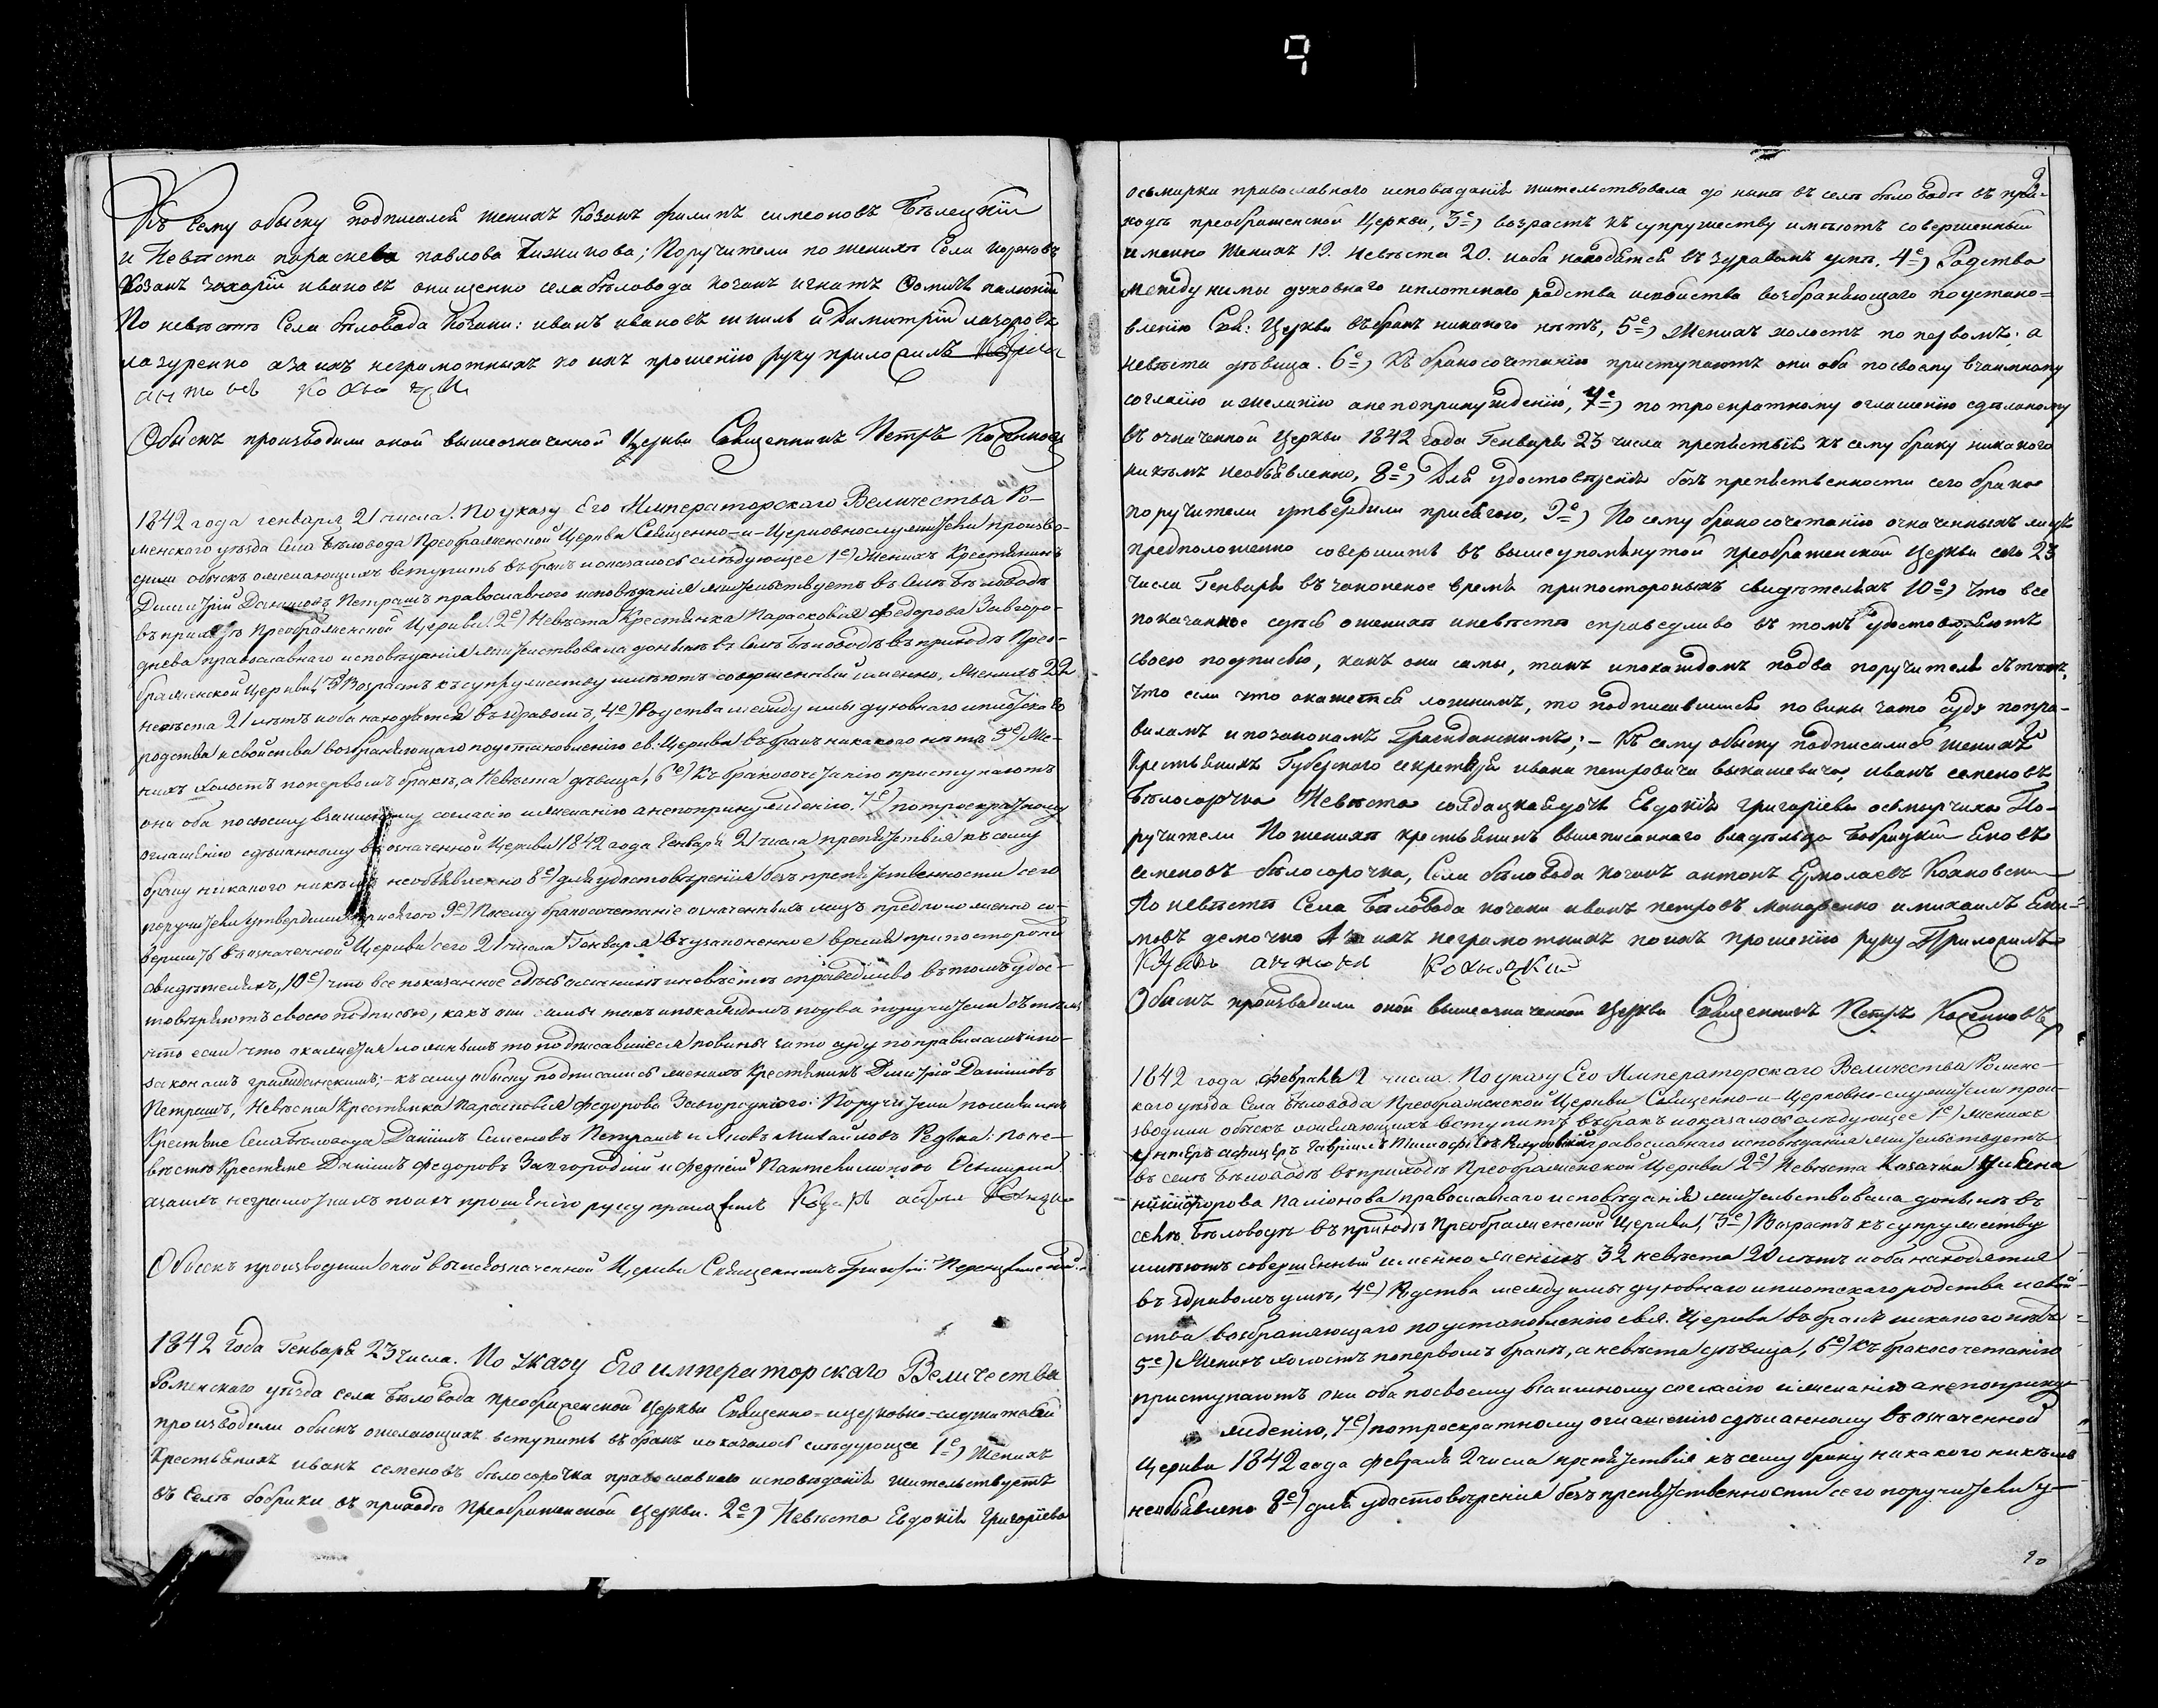 Къ сему обыску подписалса женихъ Козакъ филипъ симеоновъ Бѣлецкій
и Невѣста параскева павлова Книжкова; Поручители по женихѣ Села
Козакъ захарій ивановъ онищенко села бѣловода козакъ игнатъ Фомичъ
По невѣстѣ Села бѣловода Козаки: иванъ ивановъ шпиль и Димитрій лазоревъ
лазуренко аза ихъ неграмотныхъ по ихъ прошенію руку приложилъ
антонъ
Обыскъ производили оной вышеозначенной Церкви Священникъ Петръ
1842 года генваря 21 числа. По указу Его Императорскаго Величества Ро-
менскаго уѣзда Села Бѣловода Преображенской Церкви Священно-и-Церковнослужители произво-
дили обыскъ о желающихъ вступить въ бракъ и оказалось слѣдующее 1е) Женихъ Крестянинъ
Димитрій Даниловъ Петрашъ православного исповѣданія жительствуетъ въ Селѣ Бѣловодѣ
въ приходѣ Преображенской Церкви. 2е) Невѣста Крестянка Парасковія Федорова Завгоро-
днева православнаго исповѣданія жительствовала донынѣ въ Селѣ Бѣловодѣ въ приходѣ Прео-
браженской Церкви, 3е) Возрастъ къ супружеству имѣютъ совершенный именно, Женихъ 22
невѣста 21 лѣтъ и оба находятся въ здравомъ, 4е) Родства между ими духовнаго и плотскаго
родства и свойства возбраняющаго по установленію св. Церкви въ бракъ никакого нѣтъ 5е) Же-
нихъ холостъ по первомъ бракѣ, а Невѣста дѣвица, 6е) Къ бракосочетанію приступаютъ
они оба по своему взаимному согласію и желанію а не по принужденію. 7е) по троекратному
оглашенію сдѣланному въ означенной Церкви 1842 года Генваря 21 числа препятствія къ сему
браку никакого никѣмъ необъявленно 8е) для удостовѣренія безъ препятственности сего
поручители утвердили присягою 9е) По сему бракосочетаніе означенныхъ лицъ предположенно со-
вершить въ означенной Церкви сего 21 числа Генваря въ узаконенное время при посторонныхъ
свидѣтеляхъ, 10е) что все показанное здѣсь о женихѣ и невѣстѣ справедливо въ томъ удос-
товѣряютъ своею подписью, какъ они самы такъ и по каждомъ по два поручители съ тѣмъ
что если что окажется ложнымъ то подписавшіеся повины за то суду по правиламъ и по
законамъ гражданскимъ;- къ сему обыску подписались женихъ Крестянинъ Димитрій Даниловъ
Петрашъ, Невѣста Крестянка Парасковія Федорова Завгороднего: Поручители по женихѣ
Крестяне Села Бѣловода Даніилъ Семеновъ Петрашъ и Яковъ Михайловъ Редька: по не-
вѣстѣ Крестяне Даніилъ Федоровъ Завгородній и Федосій Пантелимоновъ Осьмирка
а за ихъ неграмотныхъ по ихъ прошенію руку приложилъ
Обыскъ производили оной вышеозначенной Церкви Священникъ
1842 года Генваря 23 числа. По указу Его императорскаго Величества
Роменскаго уѣзда села Бѣловода преображенской Церкви Священно-и церковно-служители
производили обыскъ ожелающихъ вступить въ бракъ и оказалось слѣдующее 1е) Женихъ
Крестьянинъ иванъ семеновъ бѣлосорочка православнаго исповѣданія жительствуетъ
въ Селѣ бобрики въ приходѣ Преображенской Церкви. 2е) Невѣста Евдокія Григоріева
осьмирки православного исповѣданія жительствовала до нынѣ въ селѣ бѣловодѣ въ при-
ходѣ преображенской Церкви, 3е) возрастъ къ супружеству имѣютъ совершенный
именно Женихъ 19. Невѣста 20. и оба находятся въ здравомъ умѣ. 4е) Родства
между ними духовнаго и плотского родства и свойства возбраняющаго по устано-
вленію Свя: Церкви въ бракъ никакого нѣтъ, 5е) Женихъ холостъ по первомъ; а
невѣста дѣвица. 6е) Къ бракосочетанію приступаютъ они оба по своему взаимному
согласію и желанію а не по принужденію, 7е) по троекратному оглашенію сдѣланому
въ означенной Церкви 1842 года Генваря 23 числа препятствія къ сему браку никакого
никѣмъ необъявленно, 8е) Для удостовѣренія безъ препятственности сего брака
поручители утвердили присягою, 9е) По сему бракосочетанію означенныхъ лицъ
предположенно совершить въ вышеупомянутой преображенской Церкви сего 23
числа Генваря въ законеное время при постороныхъ свидѣтеляхъ 10е) Что все
показанное сдѣсь о женихѣ и невѣстѣ справедливо въ томъ удостовѣряютъ
своею подписью, какъ они самы, такъ и по каждомъ по два поручителя съ тѣмъ,
что если что окажется ложнымъ, то подписавшіеся повины зато суду по пра-
виламъ и по законамъ Гражданскимъ; - Къ сему обыску подписались женихъ
Крестьянинъ Губерского секретаря ивана петровича иванъ семеновъ
Бѣлосорочка Невѣста солдацкая дочь Евдокія григоріева осьмирчика По-
ручители По женихѣ крестьянинъ вышеписанного владѣльца Бобрицкій Яковъ
семеновъ бѣлосорочка, Села бѣловода козакъ антонъ Ермолаевъ
По невѣстѣ Села Бѣловода козаки иванъ петровъ макаренко и михаилъ
демочко А за ихъ неграмотныхъ по ихъ прошенію руку Приложилъ
Обыскъ производили оной вышеозначенной Церкви Священникъ Петръ
1842 года Февраля 2 числа. По указу Его Императорскаго Величества Роменс-
каго уѣзда Села Бѣловода Преображенской Церкви Священно-и-Церковно-служители прои-
зводили обыскъ о желающихъ вступить въ бракъ и оказалось слѣдующее 1е) Женихъ
унтеръ афицеръ Гавріилъ Тимофѣевъ православнаго исповѣданія жительствуетъ
въ селѣ Бѣловодѣ въ приходѣ Преображенской Церкви 2е) Невѣста Казачка
никифорова Паліонова православнаго исповѣданія жительствовала донынѣ въ
селѣ Бѣловодѣ въ приходѣ Преображенской Церкви, 3е) Возрастъ къ супружеству
имѣютъ совершенный именно женихъ 32 невѣста 20 лѣтъ и оба находятся
въ здравомъ умѣ, 4е) Родства между ими духовнаго и плотскаго родства и свой-
ства возбраняющаго по установленію свя. Церкви въ бракъ никакого нѣтъ
5е) Женихъ холостъ по первомъ бракѣ, а невѣста дѣвица, 6е) къ бракосочетанію
приступаютъ они оба по своему взаимному согласію и желанію а не по прину-
жденію, 7е) по троекратному оглашенію сдѣланному въ означенной
Церкви 1842 года февраля 2 числа препятствія къ сему браку никакого никѣмъ
необъявлено 8е) для удостовѣренія безъ препятственности сего поручители у-